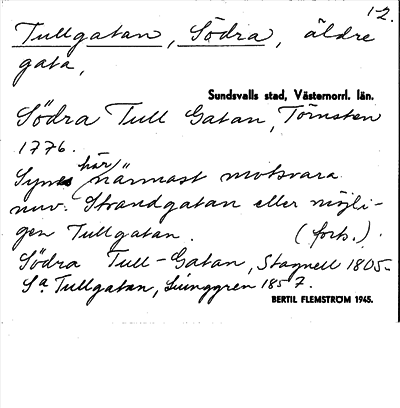 1-2.
Tullgatan, Södra, äldre
gata,
Sundsvalls stad, Västernorrl. län.
Södra Tull Gatan, Törnsten
1776.
Synes här närmast motsvara
nuv. Strandgatan eller möjli-
gen Tullgatan. (forts.).
Södra Tull-Gatan, Stagnell 1805.
Sa Tullgatan, Ljunggren 1857.
BERTIL FLEMSTRÖM 1945.